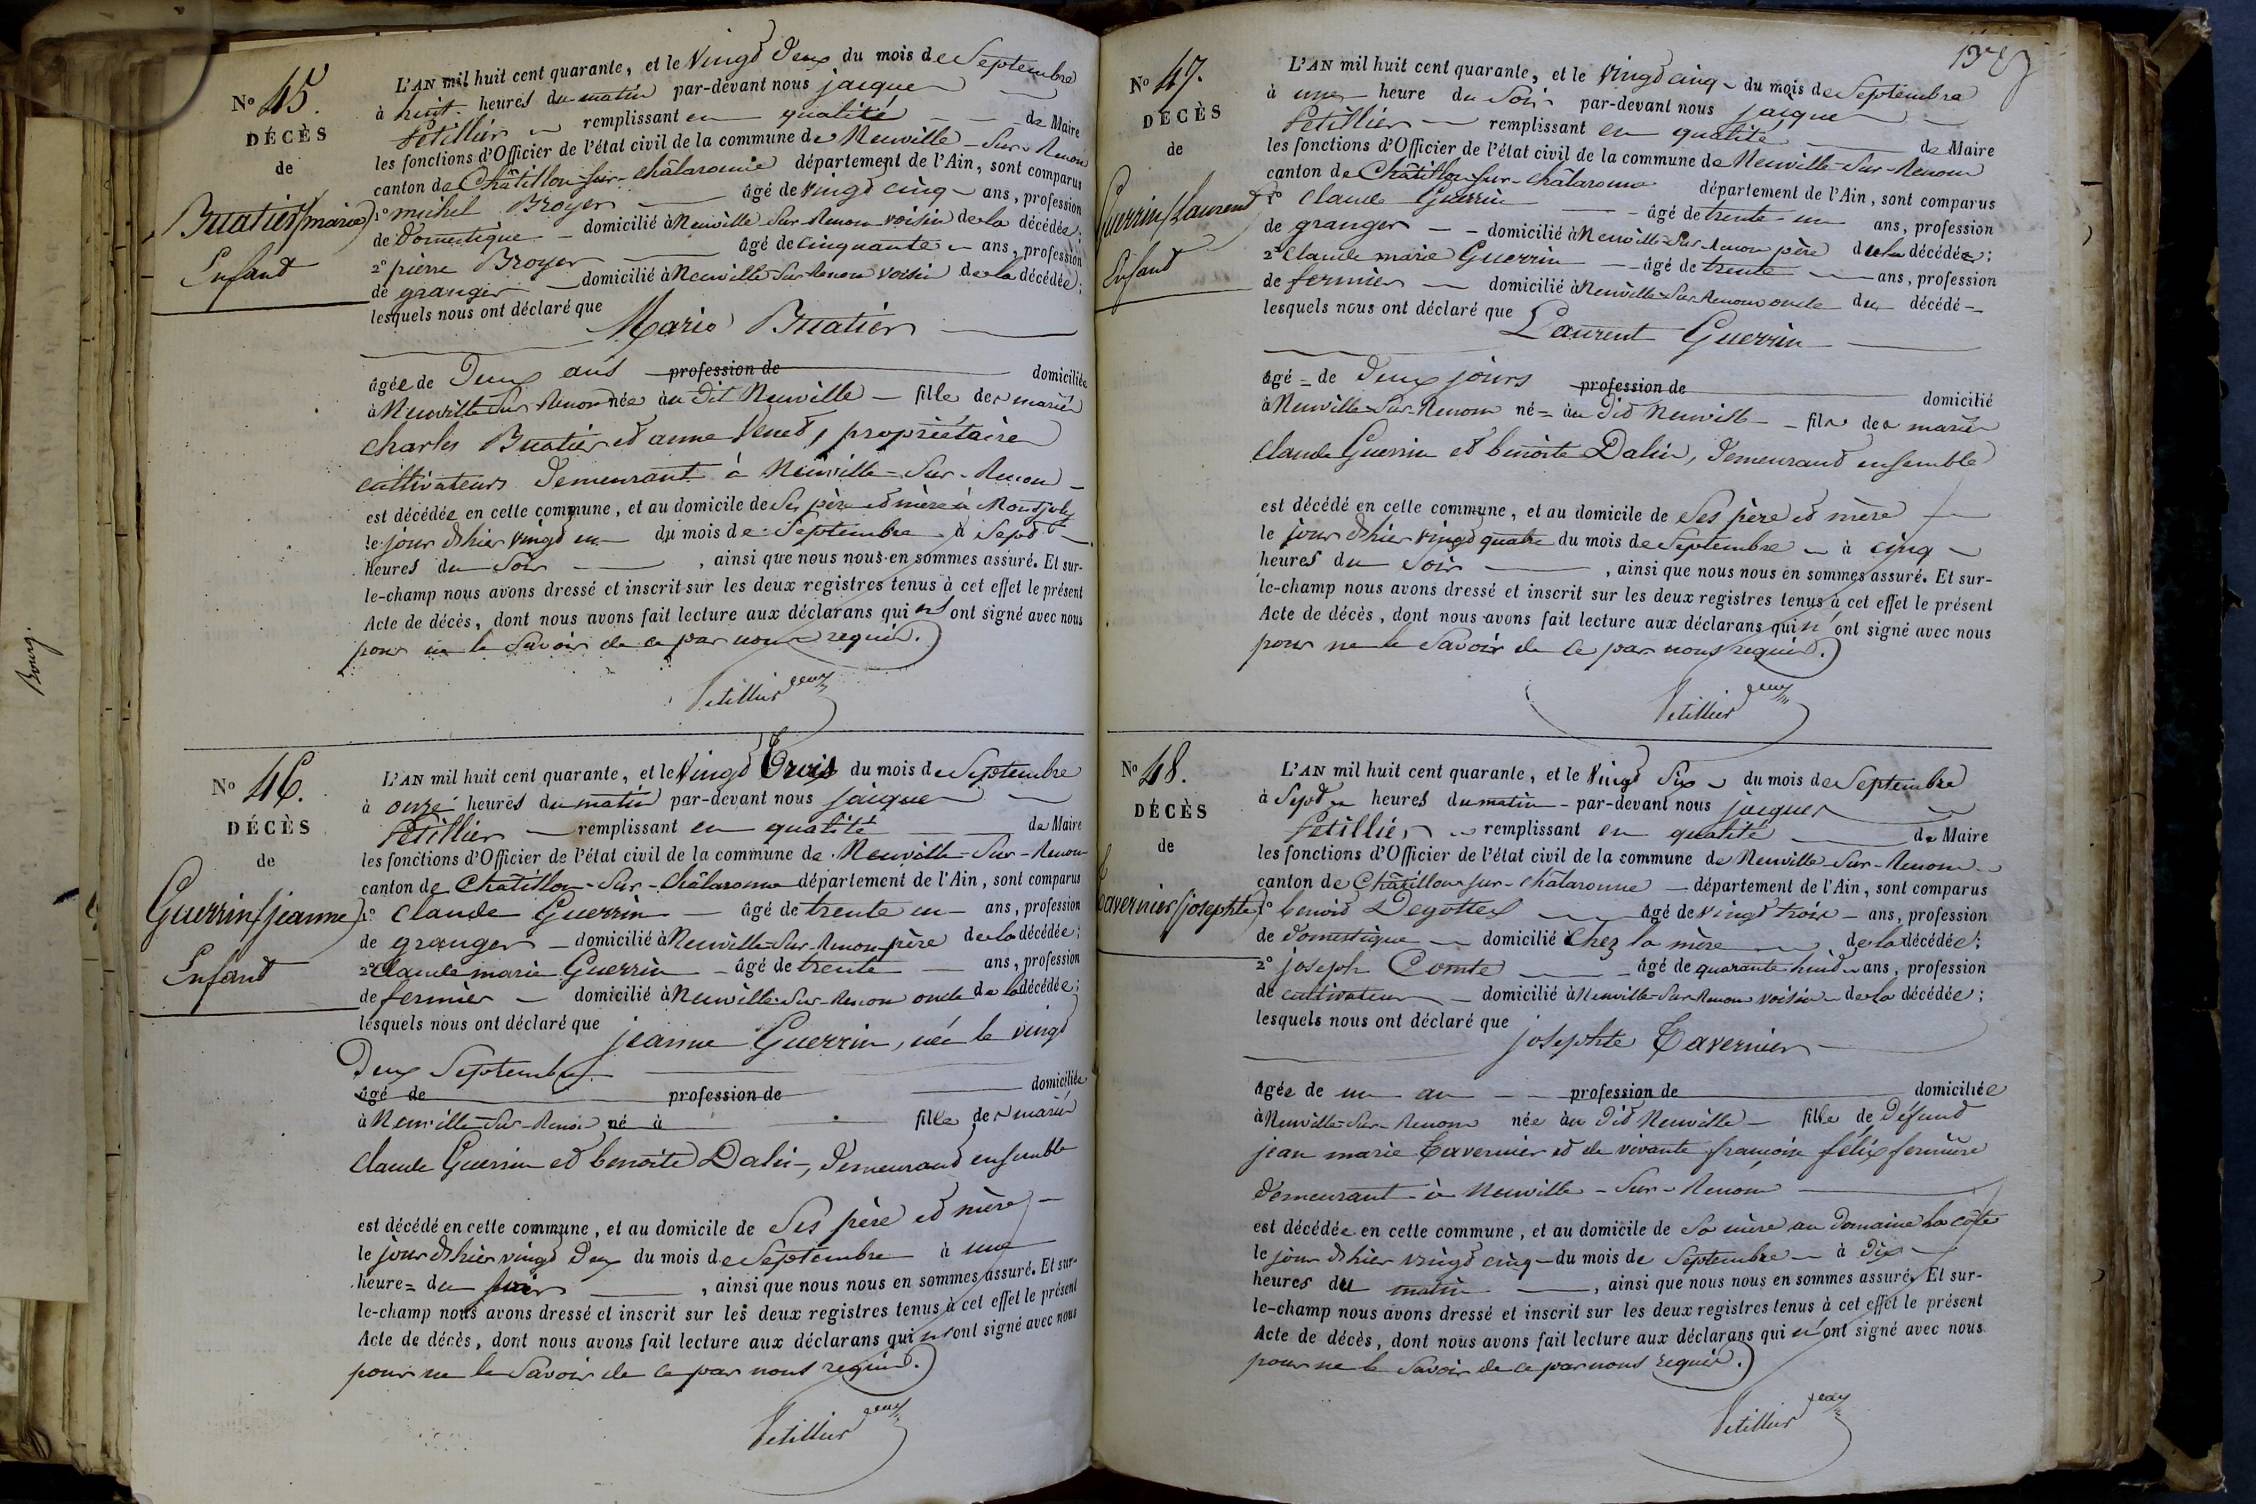 Bourg.
No 45.
DÉCÈS
de
Buatier (marie)
Enfant
L'AN mil huit cent quarante, et le Vingt Deux du mois de Septembre
à huit heures du matin par-devant nous jacques
Petillier remplissant en qualité de Maire
les fonctions d'Officier de l'état civil de la commune de Neuville-Sur-Renom
canton de Châtillon-sur-châlaronne département de l'Ain, sont comparus
1o michel Broyer âgé de vingt cinq ans, profession
de Domestique domicilié à Neuville Sur Renom voisin de la décédée;
2o pierre Broyer âgé de cinquante ans, profession
de granger domicilié à Neuville Sur Renom voisin de la décédée;
lesquels nous ont déclaré que
Marie Buatier
âgée de Deux ans profession de domiciliée
à Neuville Sur Renom née au dit Neuville fille des mariés
Charles Buatier et anne Venet, propriétaires
cultivateurs Demeurant à Neuville-Sur-Renom
est décédée en cette commune, et au domicile de Ses père et mère à
le jour d'hier vingt un du mois de Septembre à Sept
heures du Soir, ainsi que nous nous en sommes assuré. Et sur-
le-champ nous avons dressé et inscrit sur les deux registres tenus à cet effet le présent
Acte de décès, dont nous avons fait lecture aux déclarans qui n'ont signé avec nous
pour ne le Savoir de ce par nous requis.
Petillier
No 46.
DÉCÈS
de
Guerrin (jeanne)
Enfant
L'AN mil huit cent quarante, et le Vingt Trois du mois de Septembre
à onze heures du matin par-devant nous jacques
Petillier remplissant en qualité de Maire
les fonctions d'Officier de l'état civil de la commune de Neuville-Sur-Renom
canton de Châtillon-Sur-châlaronne département de l'Ain, sont comparus
1o Claude Guerrin âgé de trente un ans, profession
de granger domicilié à Neuville-Sur-Renom père de la décédée;
2o Claude marie Guerrin âgé de trente ans, profession
de fermier domicilié à Neuville-Sur-Renom oncle de la décédée;
lesquels nous ont déclaré que jeanne Guerrin, née le vingt
Deux Septembre
âgé de profession de domiciliée
à Neuville-Sur-Renom né à fille des mariés
Claude Guerrin et benoite Dalin, Demeurant ensemble
est décédé en cette commune, et au domicile de Ses père et mère
le jour d'hier vingt Deux du mois de Septembre à une
heure du soir, ainsi que nous nous en sommes assuré. Et sur-
le-champ nous avons dressé et inscrit sur les deux registres tenus à cet effet le présent
Acte de décès, dont nous avons fait lecture aux déclarans qui n'ont signé avec nous
pour ne le Savoir de ce par nous requis.
Petillier
No 47.
DÉCÈS
de
Guerrin (Laurent)
Enfant
L'AN mil huit cent quarante, et le Vingt cinq du mois de Septembre
à une heure du Soir par-devant nous jacques
Petillier remplissant en qualité de Maire
les fonctions d'Officier de l'état civil de la commune de Neuville-Sur-Renom
canton de Châtillon-sur-châlaronne département de l'Ain, sont comparus
1o Claude Guerrin âgé de trente-un ans, profession
de granger domicilié à Neuville-Sur-Renom père du décédé;
2o Claude marie Guerrin âgé de trente ans, profession
de fermier domicilié à Neuville-Sur-Renom oncle du décédé
lesquels nous ont déclaré que
Laurent Guerrin
âgé de Deux jours profession de domicilié
à Neuville-Sur-Renom né au Dit Neuville fils des mariés
Claude Guerrin et benoite Dalin, Demeurant ensemble
est décédé en cette commune, et au domicile de Ses père et mère
le jour d'hier vingt quatre du mois de Septembre à cinq
heures du Soir, ainsi que nous nous en sommes assuré. Et sur-
le-champ nous avons dressé et inscrit sur les deux registres tenus à cet effet le présent
Acte de décès, dont nous avons fait lecture aux déclarans qui n'ont signé avec nous
pour ne le Savoir de ce par nous requis.
Petillier
No 48.
DÉCÈS
de
Tavernier (josephte)
L'AN mil huit cent quarante, et le Vingt Six du mois de Septembre
à Sept heures du matin par-devant nous jacques
Petillier remplissant en qualité de Maire
les fonctions d'Officier de l'état civil de la commune de Neuville-Sur-Renom
canton de Châtillon-sur-châlaronne département de l'Ain, sont comparus
1o benoit Degottex âgé de vingt trois ans, profession
de Domestique domicilié chez la mère de la décédée;
2o joseph Comte âgé de quarante huit ans, profession
de cultivateur domicilié à Neuville-Sur-Renom voisin de la décédée;
lesquels nous ont déclaré que
josephte Tavernier
âgée de un an profession de domiciliée
à Neuville-Sur-Renom née au Dit Neuville fille de Défunt
jean marie Tavernier et de vivante françoise félix fermière
Demeurant à Neuville-Sur-Renom
est décédée en cette commune, et au domicile de Sa mère au Domaine La côte
le jour d'hier vingt cinq du mois de Septembre à Dix
heures du matin, ainsi que nous nous en sommes assuré. Et sur-
le-champ nous avons dressé et inscrit sur les deux registres tenus à cet effet le présent
Acte de décès, dont nous avons fait lecture aux déclarans qui n'ont signé avec nous
pour ne le Savoir de ce par nous requis.
Petillier